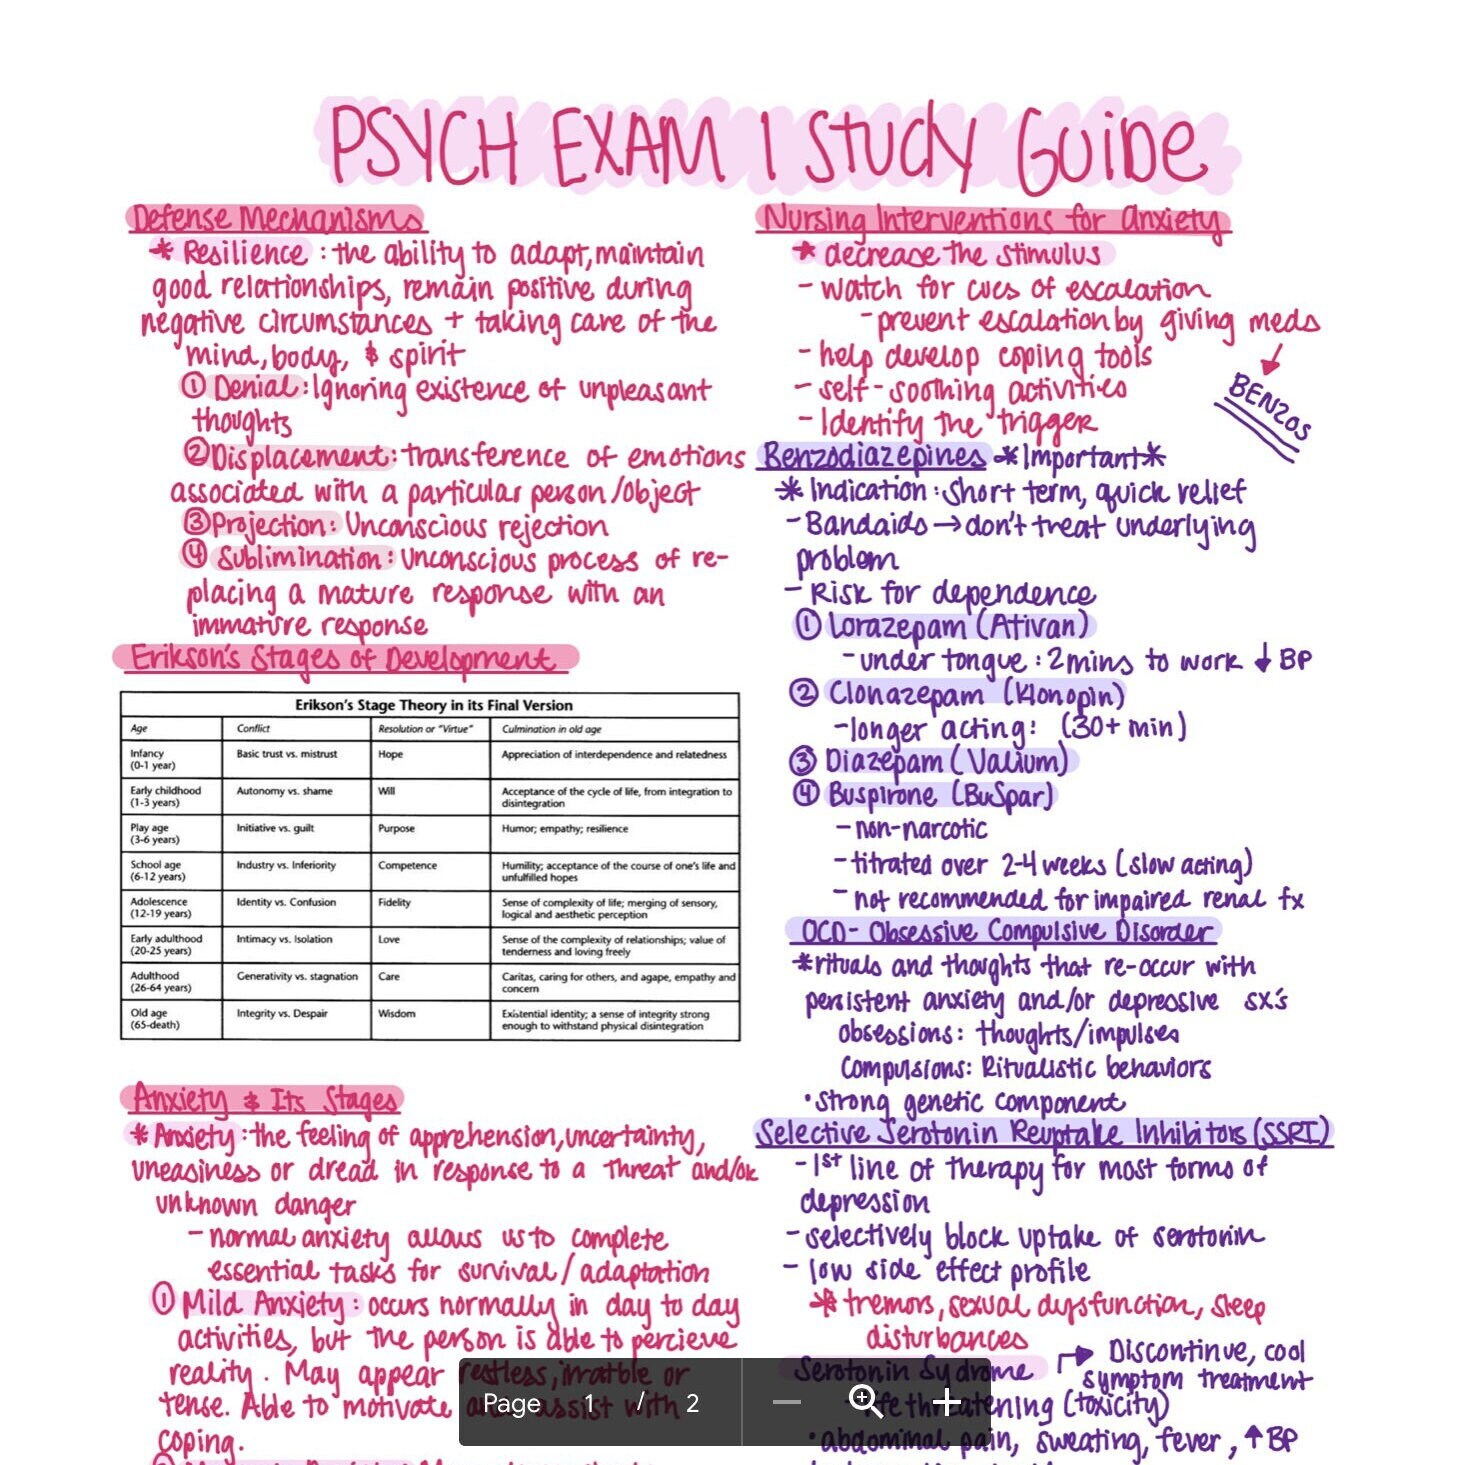 PSYCH EXAM 1 Study Guide
Defense Mechanisms
* Resilience : the ability to adapt, maintain
good relationships, remain positive during
negative circumstances + taking care of the
mind, body, & spirit
① Denial: Ignoring existence of unpleasant
thoughts
② Displacement: transference of emotions
associated with a particular person/object
③ Projection: Unconscious rejection
④ Sublimination: Unconscious process of re-
placing a mature response with an
immature response
Erikson's Stages of Development
Erikson's Stage Theory in its Final Version
Age Conflict Resolution or "Virtue" Culmination in old age
Infancy (0-1 year) Basic trust vs. mistrust Hope Appreciation of interdependence and relatedness
Early childhood (1-3 years) Autonomy vs. shame Will Acceptance of the cycle of life, from integration to disintegration
Play age (3-6 years) Initiative vs. guilt Purpose Humor; empathy; resilience
School age (6-12 years) Industry vs. Inferiority Competence Humility; acceptance of the course of one's life and unfulfilled hopes
Adolescence (12-19 years) Identity vs. Confusion Fidelity Sense of complexity of life; merging of sensory, logical and aesthetic perception
Early adulthood (20-25 years) Intimacy vs. Isolation Love Sense of the complexity of relationships; value of tenderness and loving freely
Adulthood (26-64 years) Generativity vs. stagnation Care Caritas, caring for others, and agape, empathy and concern
Old age (65-death) Integrity vs. Despair Wisdom Existential identity; a sense of integrity strong enough to withstand physical disintegration
Anxiety & Its Stages
* Anxiety: the feeling of apprehension, uncertainty,
uneasiness or dread in response to a threat and/or
unknown danger
- normal anxiety allows us to complete
essential tasks for survival/adaptation
① Mild Anxiety: occurs normally in day to day
activities, but the person is able to percieve
reality. May appear restless, irratble or
tense. Able to motivate and assist with
coping.
Nursing Interventions for Anxiety
* decrease the stimulus
- watch for cues of escalation
- prevent escalation by giving meds
BENZOS
- help develop coping tools
- self-soothing activities
- Identify the trigger
Benzodiazepines *Important*
* Indication: Short term, quick relief
- Bandaids → don't treat underlying
problem
- Risk for dependence
① Lorazepam (Ativan)
- under tongue: 2 mins to work ↓ BP
② Clonazepam (Klonopin)
- longer acting: (30+ min)
③ Diazepam (Valium)
④ Buspirone (BuSpar)
- non-narcotic
- titrated over 2-4 weeks (slow acting)
- not recommended for impaired renal fx
OCD - Obsessive Compulsive Disorder
* rituals and thoughts that re-occur with
persistent anxiety and/or depressive sx's
obsessions: thoughts/impulses
Compulsions: Ritualistic behaviors
• strong genetic component
Selective Serotonin Reuptake Inhibitors (SSRI)
- 1st line of therapy for most forms of
depression
- selectively block uptake of serotonin
- low side effect profile
* tremors, sexual dysfunction, sleep
disturbances
Serotonin Sydrome → Discontinue, cool
symptom treatment
- life threatening (toxicity)
• abdominal pain, sweating, fever, ↑ BP
Page 1 / 2